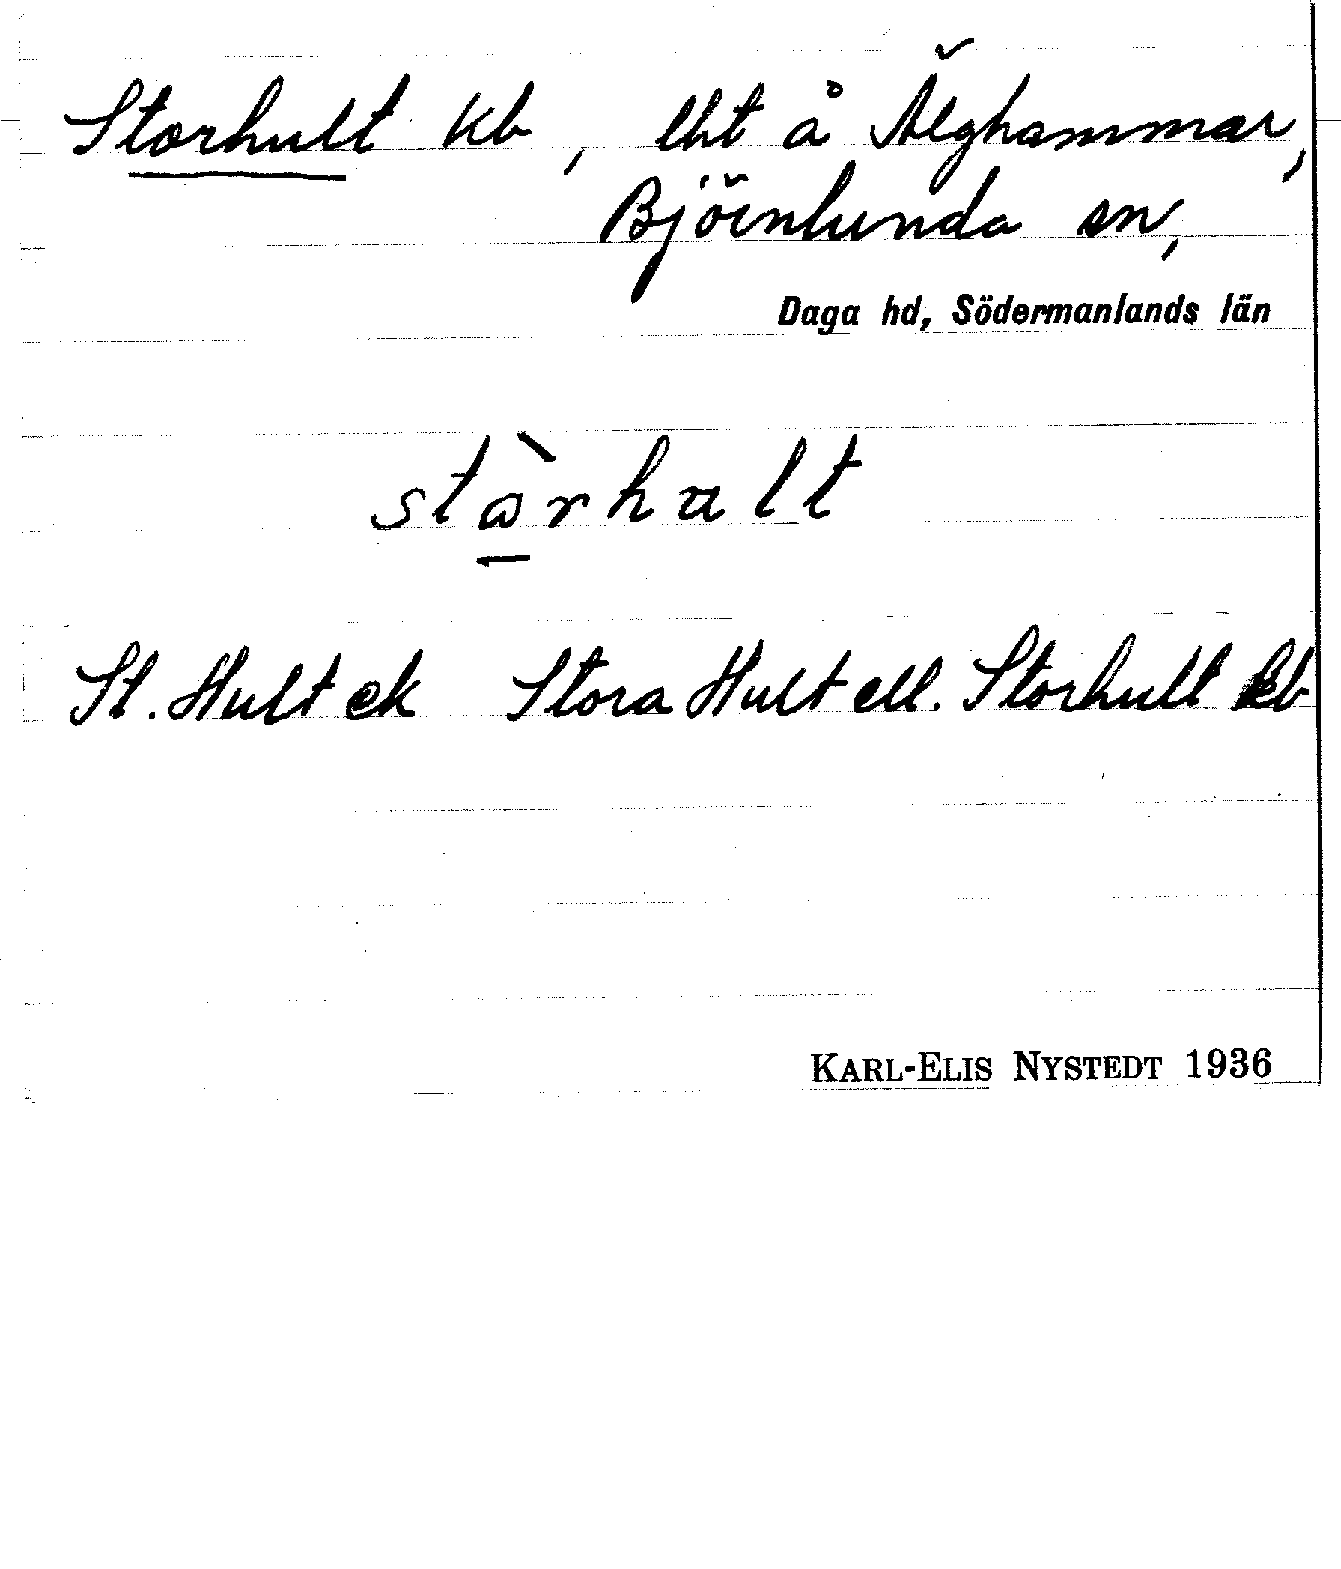 Storhult kb, lht å Älghammar,
Björnlunda sn,
Daga hd, Södermanlands län
stòrhult
St. Hult ek Stora Hult ell. Storhult kb
KARL-ELIS NYSTEDT 1936